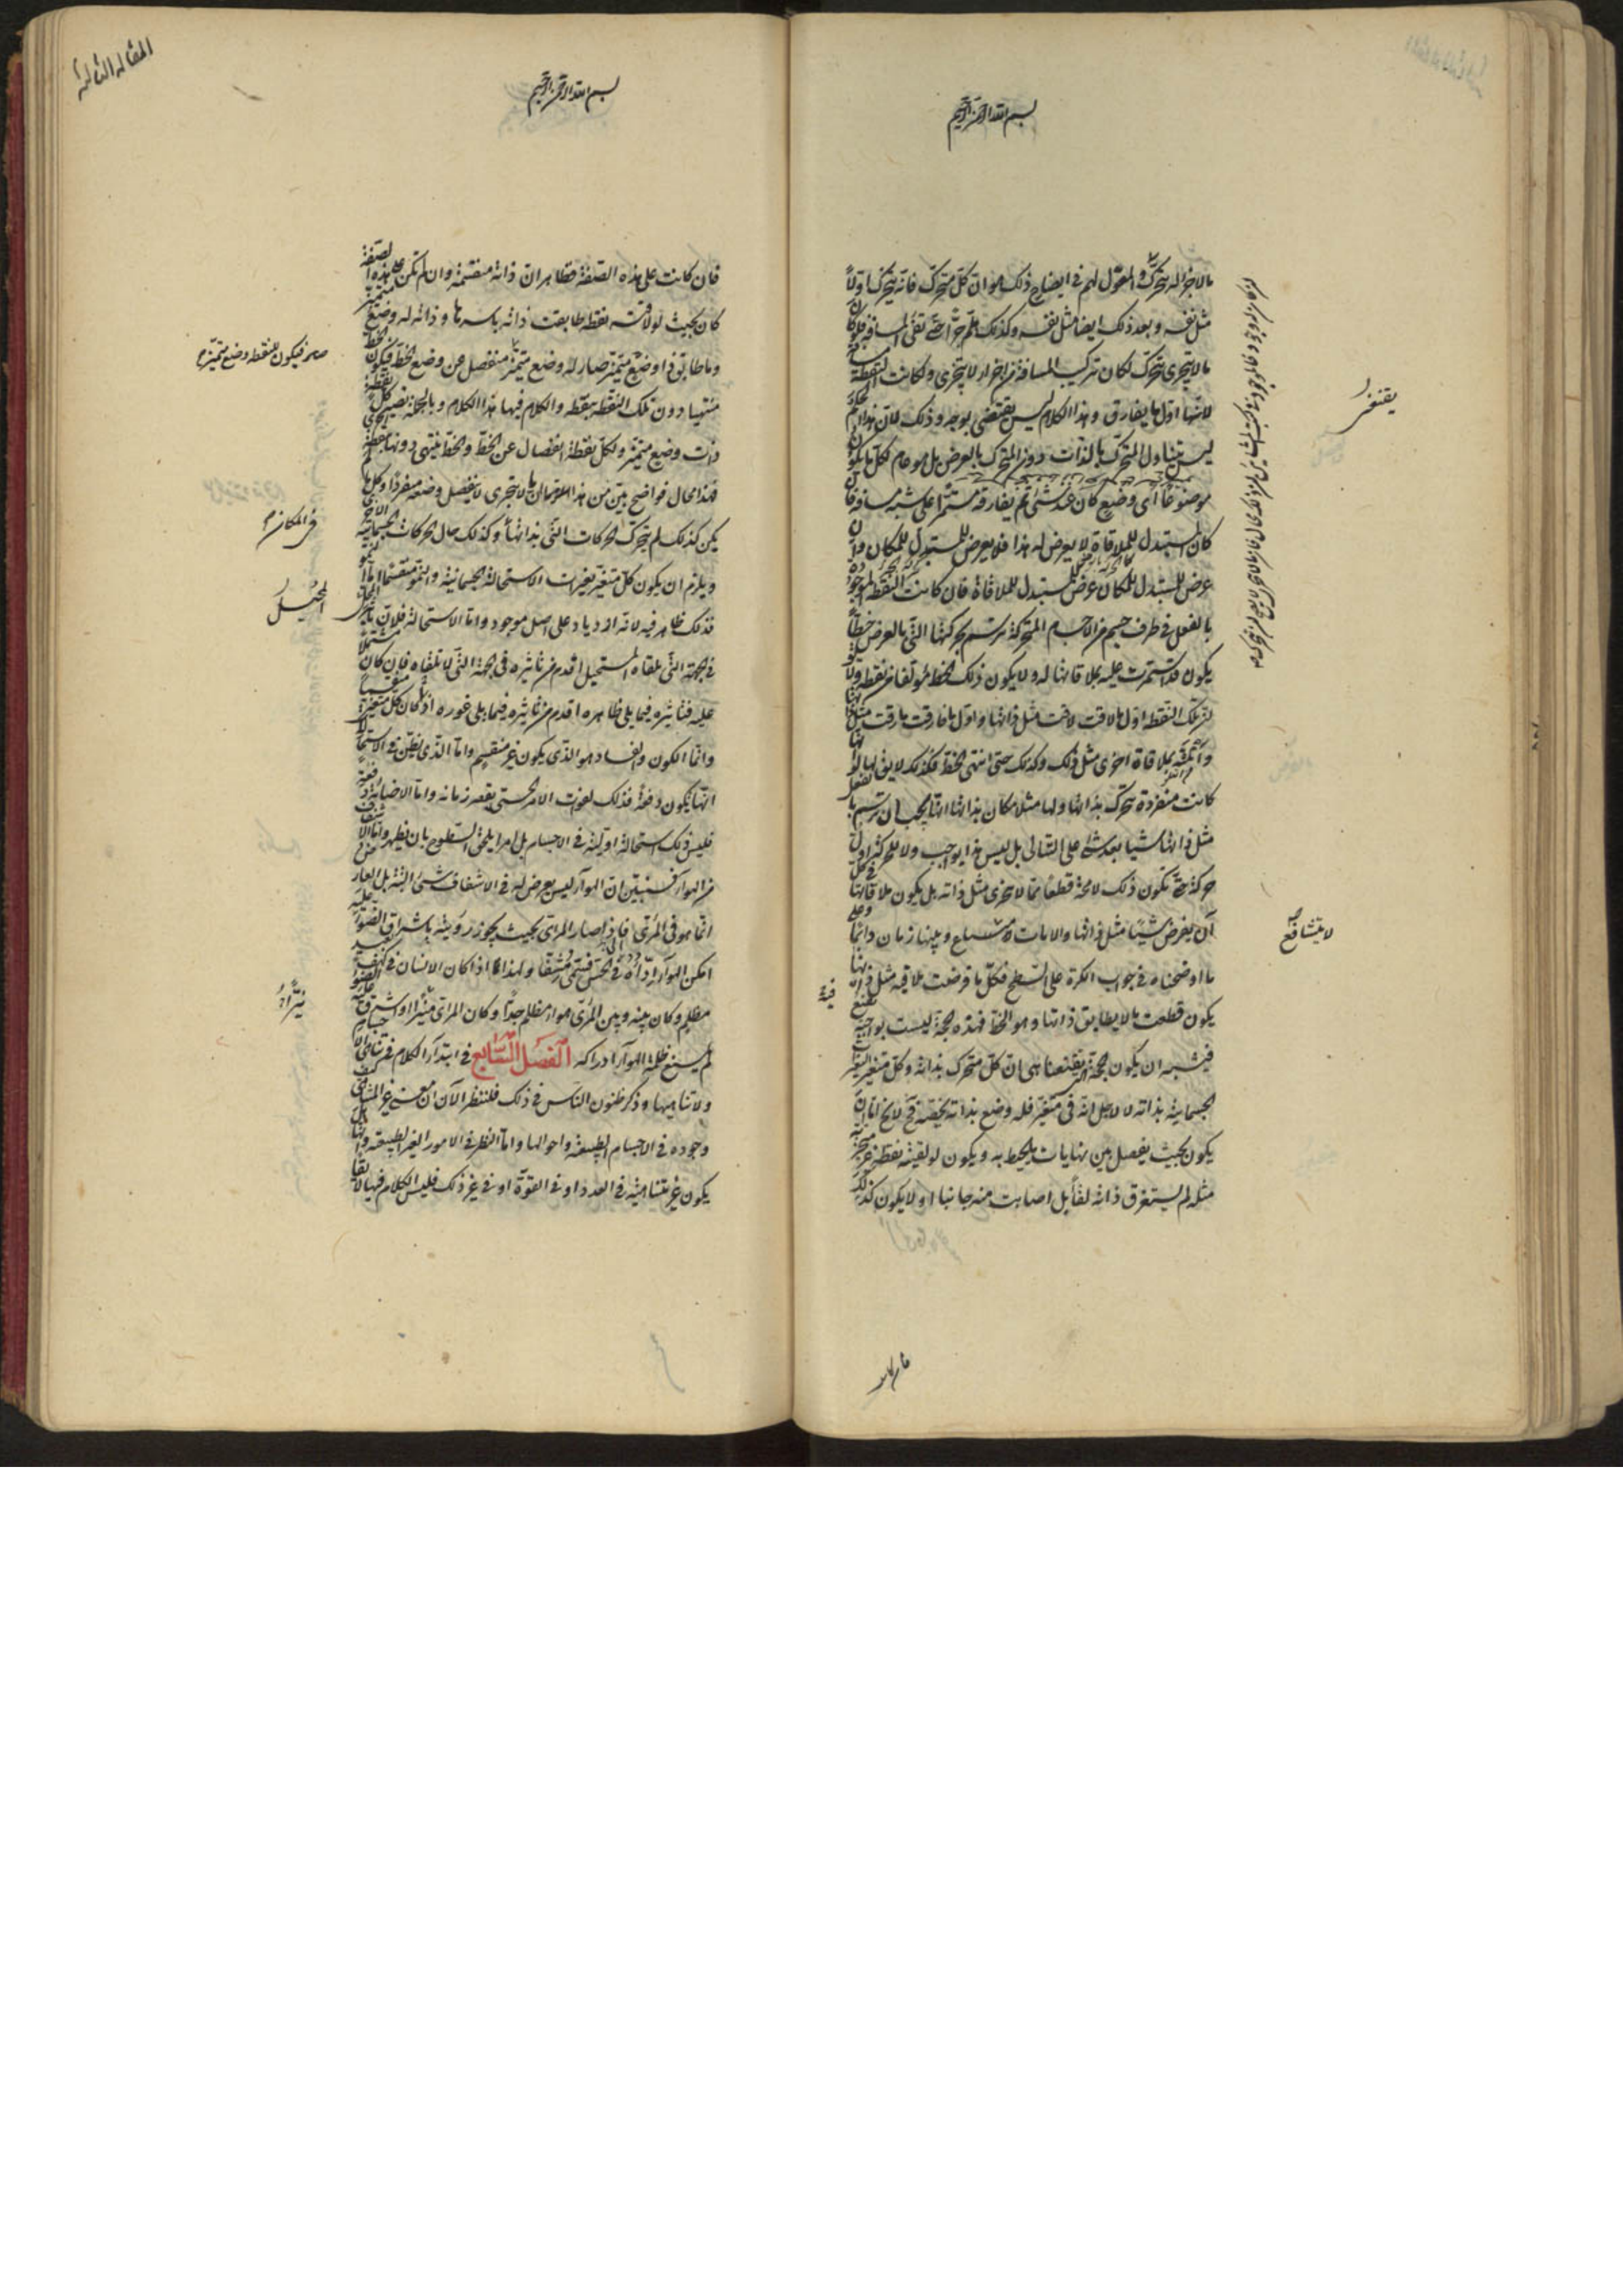 بسم الله الرحمن الرحيم
ما لا جزء له يتحرك والمعول لهم في ايضاح ذلك هو ان كل متحرك فانه يتحرك اولا
مثل نفسه وبعد ذلك ايضا مثل نفسه وكذلك هلم جرا حتى تفنى المسافة فلو كان
ما لا يتجزى يتحرك لكان تركيب المسافة من اجزاء لا يتجزى ولكانت النقطة
لانها اول ما يفارق وهذا الكلام ليس يقتضى بوجه وذلك لان هذا الحكم
ليس يتناول المتحرك بالذات دون المتحرك بالعرض بل هو عام لكل ما يكون
موضوعا اى وضع كان عند شئ ثم يفارقه مستمرا على شبه مسافة فان
كان المستبدل للملاقاة لا يعرض له هذا فلا يعرض للمستبدل للمكان وان
عرض للمستبدل للمكان عرض للمستبدل للملاقاة فان كانت النقطة الموجودة
بالفعل في طرف جسم من الاجسام المتحركة ترتسم بحركتها التى بالعرض خطا
يكون قد استمرت عليه بملاقاتها له ولا يكون ذلك الخط مؤلفا من نقط ولا
تلك النقطة اول ما لاقت لاقت مثل ذاتها واول ما فارقت فارقت مثل ذاتها
ملاقاة اخرى مثل ذلك وكذلك حتى انتهى الخط فكذلك لا يقن لها لو
كانت منفردة تتحرك بذاتها ولها مثلا مكان بذاتها انها يجب ان ترتسم بالفعل
مثل ذاتها شيئا بعد شئ على التتالى بل ليس هذا بواجب ولا للحركة اول
حركة حتى تكون ذلك لا محة قطعا مما لا تجزى مثل ذاته بل يكون ملاقاتها في كل
آن يفرض شيئا مثل ذاتها والانات لا تتشافع وبينها زمان دائما وعلى
ما اوضحناه في جواب الكرة على السطح فكل ما فرضت ملاقيه مثل ذاتها
يكون قطعت ما لا يطابق ذاتها وهو الخط فهذه الحجة ليست بواجبة
فيشبه ان يكون الحجة التى تقنعنا هى ان كل متحرك بذاته وكل متغير التغيرات
الجسمانية بذاته لا لاجل انه في متغير فله وضع بذاته يخصه فح لا يخ اما ان
يكون بحيث يفصل بين نهايات ما يحيط به ويكون لو لقيته نقطة غير متجزية
مثله لم يستغرق ذاته لقاء بل اصابت منه جانبا او لا يكون كذلك
يقنع
لا تتشافع
فان كانت
المقالة الثالثة
بسم الله الرحمن الرحيم
فان كانت على هذه الصفة فظاهر ان ذاته منقسمة وان لم تكن على هذه الصفة
كان بحيث لو لاقته نقطة طابقت ذاته باسرها وذاته له وضع متميز
وما طابق ذا وضع متميز صار له وضع متميز منفصل عن وضع الخط فيكون الخط
منتهيا دون تلك النقطة بنقطة والكلام فيها هذا الكلام وبالجملة تصير كل نقطة
ذات وضع متميز ولكل نقطة انفصال عن الخط والخط ينتهى دونها
فهذا محال فواضح بين من هذا الكلام ان ما لا يتجزى لا ينفصل وضعه مفردا وكل ما لم
يكن كذلك لم يتحرك الحركات التى بذاتها وكذلك حال الحركات الجسمانية الاخرى
ويلزم ان يكون كل متغير تغيرات الاستحالة الجسمانية والنمو منقسما اما النمو
فذلك ظاهر فيه لانه ازدياد على اصل موجود واما الاستحالة فلان تاثير المحيل
في الجهة التى تلقاه المستحيل اقدم من تاثيره في الجهة التى لا تلقاه فان كان مشتملا
عليه فتاثيره فيما يلى ظاهره اقدم من تاثيره فيما يلى غوره
وانما الكون والفساد هو الذى يكون غير منقسم واما الذى يظن في الاستحالات
انها يكون دفعة فذلك لفوت الامر الحسى بقصر زمانه واما الاضاءة دفعة
فليس ذلك استحالة اولية في الاجسام بل امر يلحق السطوح بان يظهر واما الاشفاف
من الهواء فسنبين ان الهواء ليس يعرض له في الاشفاف شئ البتة بل العارض
انما هو في المرئى فاذا صار المرئى بحيث يجوز رؤيته باشراق الضوء عليه
امكن الهواء اداءه في الحس فسمى مشفا ولهذا ما اذا كان الانسان في كهف بعيد
مظلم وكان بينه وبين المرئى هواء مظلم جدا وكان المرئى منيرا او اشرق عليه الضوء
لم يمنع ظلمة الهواء ادراكه الفصل السابع في ابتداء الكلام في تناهى الاجسام
ولا تناهيها وذكر ظنون الناس في ذلك فلننظر الآن ان معنى غير المتناهى كيف
وجوده في الاجسام الطبيعية واحوالها واما النظر في الامور الغير الطبيعية وانها هل
يكون غير متناهية في العدد او في القوة او في غير ذلك فليس الكلام فيها لايقا
فيكون للنقطة وضع متميز
في المكان
المحيل
نيرا